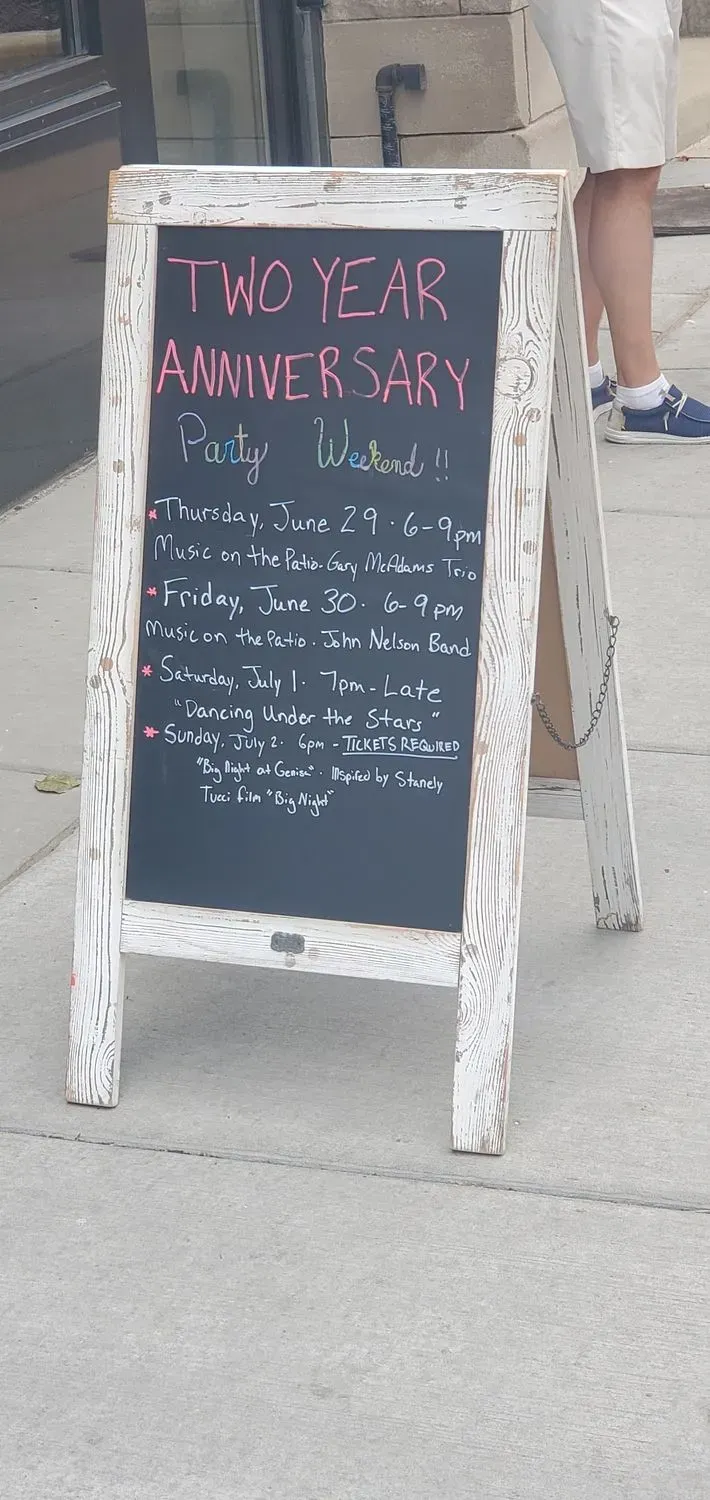 TWO YEAR
ANNIVERSARY
Party Weekend!!
* Thursday, June 29 · 6-9pm
Music on the Patio - Gary McAdams Trio
* Friday, June 30 · 6-9pm
Music on the Patio · John Nelson Band
* Saturday, July 1 · 7pm - Late
"Dancing Under the Stars"
* Sunday, July 2 · 6pm - TICKETS REQUIRED
"Big Night at Genise" · Inspired by Stanely
Tucci film "Big Night"